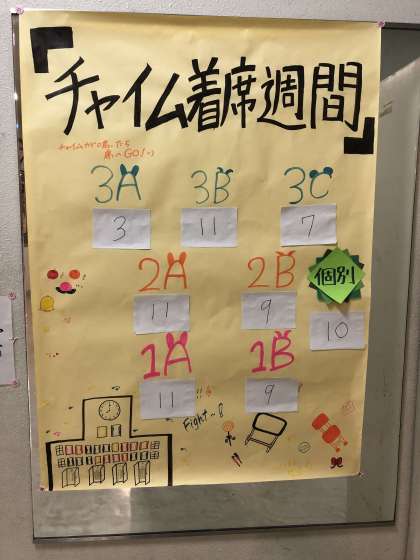 チャイム着席週間
チャイムが鳴ったら
席へGO!
3A 3B 3C
3 11 7
2A 2B 個別
11 9 10
1A 1B
11 9
Fight~!